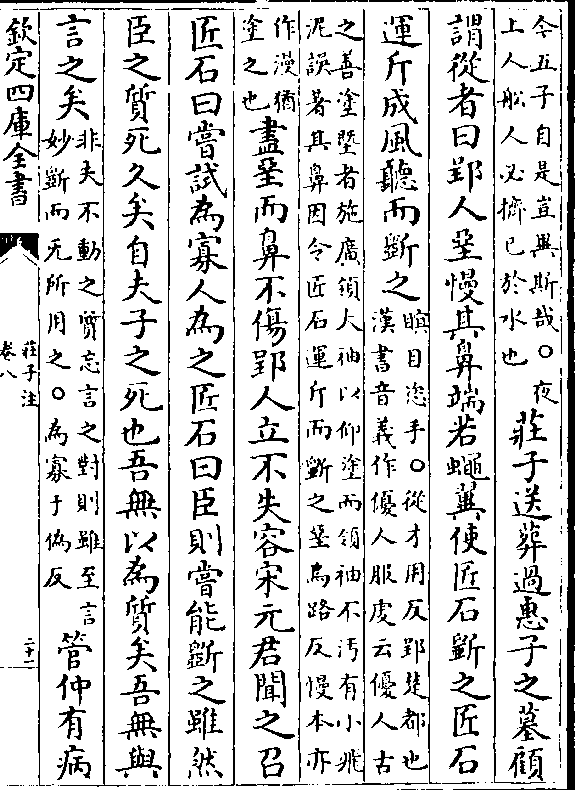 今五子自是豈異斯哉〇夜
上人舩人必擠已於水也
莊子送葬過惠子之墓顧
謂從者曰郢人堊慢其鼻端若蠅翼使匠石斲之匠石
運斤成風聽而斲之
瞑目恣手〇從才用反郢楚都也
漢書音義作優人服䖍云優人古
之善塗塈者施廣領大袖以仰塗而領袖不汚有小飛
泥誤著其鼻因令匠石運斤而斲之堊烏路反慢本亦
作漫猶
塗之也
盡堊而鼻不傷郢人立不失容宋元君聞之召
匠石曰嘗試為寡人為之匠石曰臣則嘗能斲之雖然
臣之質死久矣自夫子之死也吾無以為質矣吾無與
言之矣
非夫不動之質忘言之對則雖至言
妙斲而无所用之〇為寡于偽反
管仲有病
欽定四庫全書
莊子注
卷八